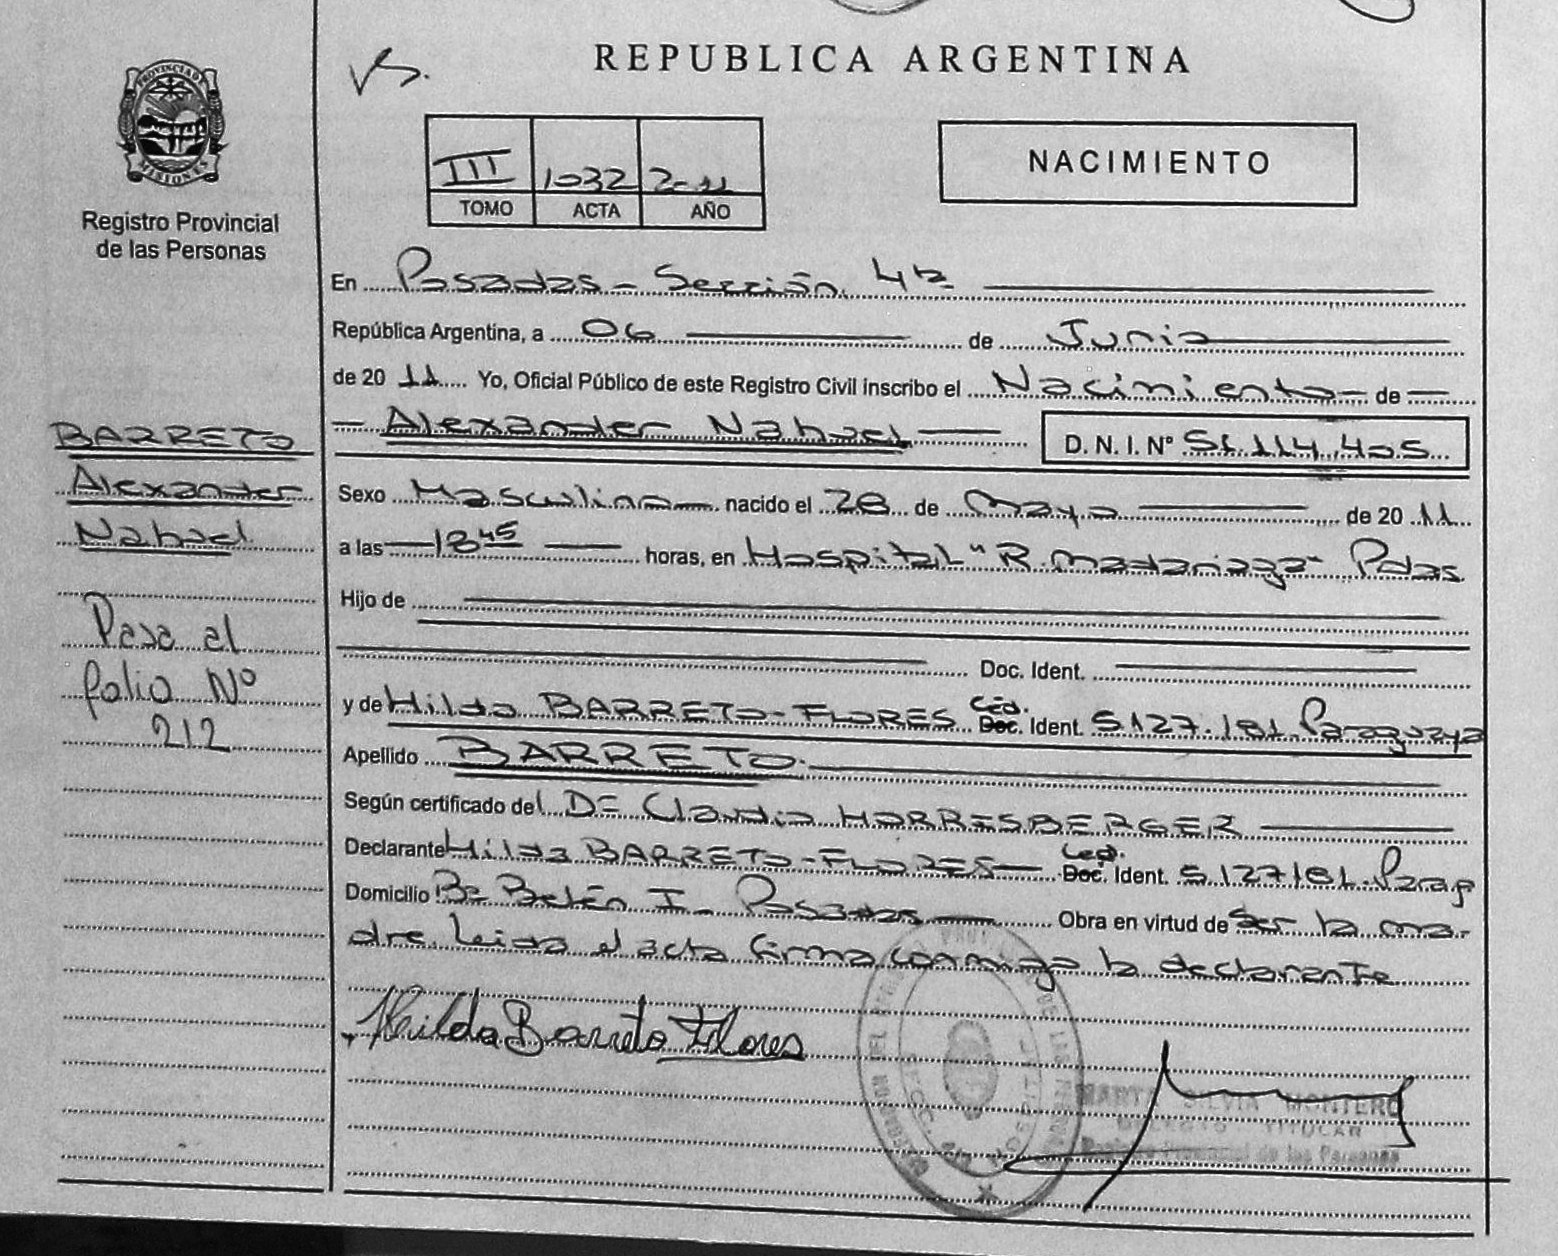 REPUBLICA ARGENTINA
PROVINCIA DE
MISIONES
Registro Provincial
de las Personas
III 1032 2011
TOMO ACTA AÑO
NACIMIENTO
En Posadas - Sección 4ta
República Argentina, a 06 de Junio
de 2011 Yo, Oficial Público de este Registro Civil inscribo el Nacimiento de
Alexander Nahuel D. N. I. Nº 51.114.405
BARRETO
Alexander
Nahuel
Sexo Masculino nacido el 28 de Mayo de 2011
a las 18 45 horas, en Hospital "R. Madariaga" Pdas.
Hijo de
Doc. Ident.
Pasa al
folio Nº
212
y de Hilda BARRETO-FLORES Céd. Doc. Ident. 5.127.181. Paraguaya
Apellido BARRETO.
Según certificado del DE Claudia HARRESBERGER
Declarante Hilda BARRETO-FLORES Ced. Doc. Ident. 5.127181. Parag
Domicilio Bº Belén I - Posadas Obra en virtud de ser la ma-
dre. Leida el acta firma conmigo la declarante
Hilda Barreto Flores
MARTA SILVIA MONTERO
TITULAR
Registro Provincial de las Personas